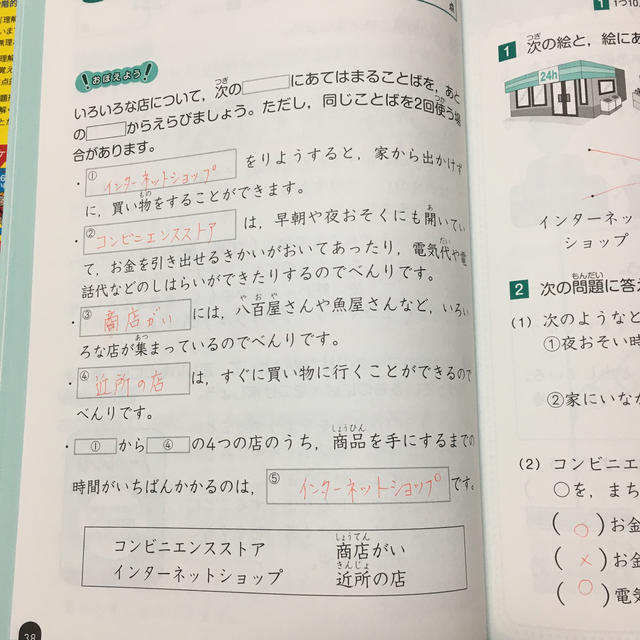 おぼえよう
いろいろな店について，次の　　にあてはまることばを，あと
の　　からえらびましょう。ただし，同じことばを2回使う場
合があります。
・① インターネットショップ をりようすると，家から出かけず
に，買い物をすることができます。
・② コンビニエンスストア は，早朝や夜おそくにも開いてい
て，お金を引き出せるきかいがおいてあったり，電気代や電
話代などのしはらいができたりするのでべんりです。
・③ 商店がい には，八百屋さんや魚屋さんなど，いろい
ろな店が集まっているのでべんりです。
・④ 近所の店 は，すぐに買い物に行くことができるので
べんりです。
・① から ④ の4つの店のうち，商品を手にするまでの
時間がいちばんかかるのは，⑤ インターネットショップ です。
コンビニエンスストア　商店がい
インターネットショップ　近所の店
38
1 次の絵と，絵にあ
24h
インターネッ
ショップ
2 次の問題に答え
(1) 次のようなと
①夜おそい時
②家にいなが
(2) コンビニエン
○を，まち
(○)お金
(×)お金
(○)電気